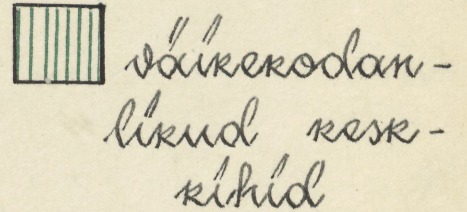 väikekodan-
likud kesk-
kihid